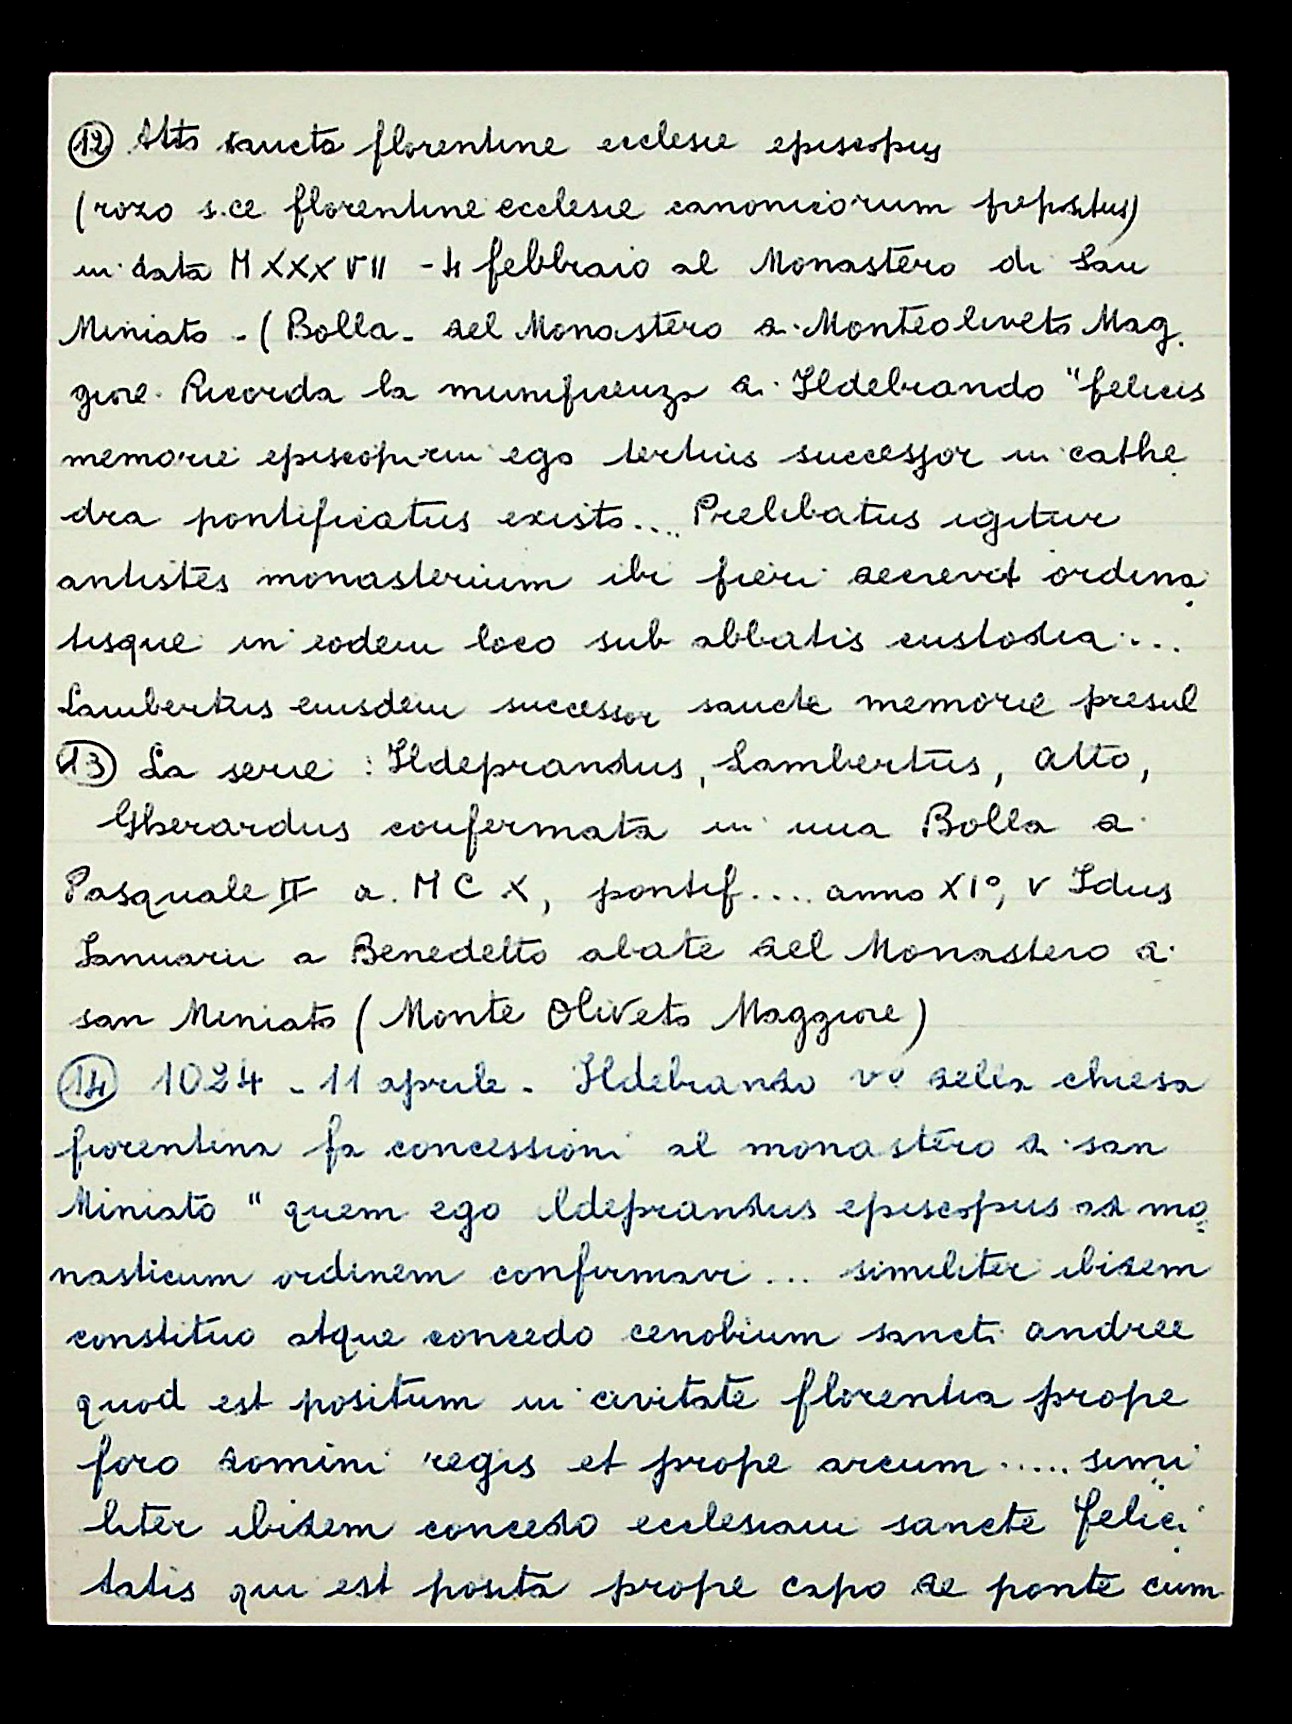 (12) Atto sancta florentine ecclesie episcopus
(rozo s.ce florentine ecclesie canonicorum prepositus)
in data MXXXVII - 4 febbraio al Monastero di San
Miniato - (Bolla - del Monastero di Monteoliveto Mag
giore. Ricorda la munificenza di Ildebrando "felicis
memorie episcopi cui ego tertius successor in cathe
dra pontificatus existo... Prelibatus igitur
antistes monasterium ibi fieri decrevit ordina
tisque in eodem loco sub abbatis custodia...
Lambertus eiusdem successor sancte memorie presul
(13) La serie : Ildeprandus, Lambertus, Atto,
Gherardus confermata in una Bolla di
Pasquale II a. MCX, pontif.... anno XI°, V Idus
Ianuarii a Benedetto abate del Monastero di
san Miniato (Monte Oliveto Maggiore)
(14) 1024 - 11 aprile - Ildebrando vº della chiesa
fiorentina fa concessioni al monastero di san
Miniato " quem ego Ildeprandus episcopus ad mo
nasticum ordinem confirmavi ... similiter ibidem
constituo atque concedo cenobium sancti andree
quod est positum in civitate florentia prope
foro domini regis et prope arcum ..... simi
liter ibidem concedo ecclesiam sancte felici
tatis qui est posita prope capo de ponte cum